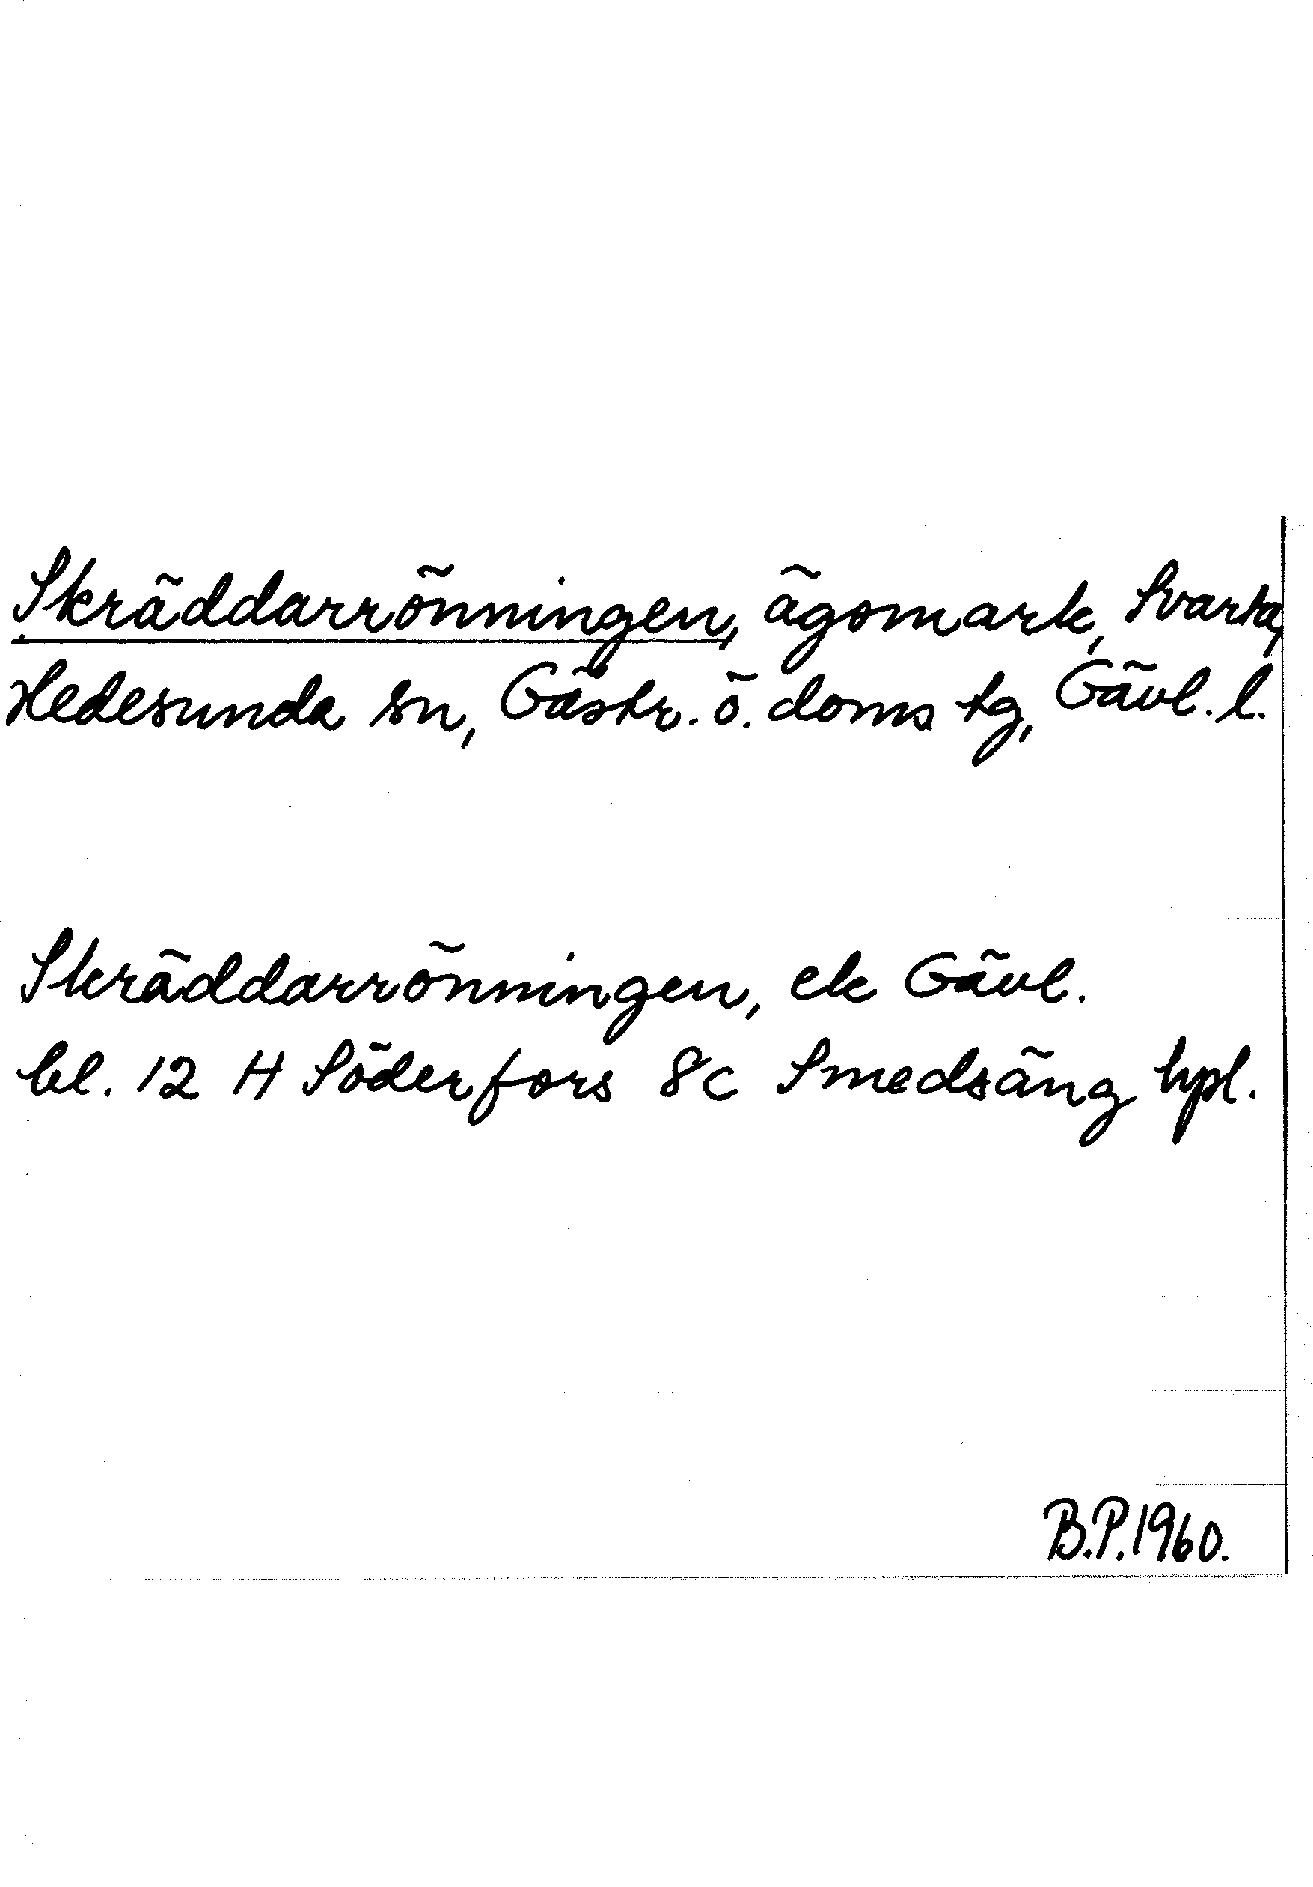 Skräddarrönningen, ägomark, Svarta,
Hedesunda sn, Gästr. ö. doms tg, Gävl. l.
Skräddarrönningen, ek Gävl.
bl. 12 H Söderfors 8c Smedsäng hpl.
B.P.1960.